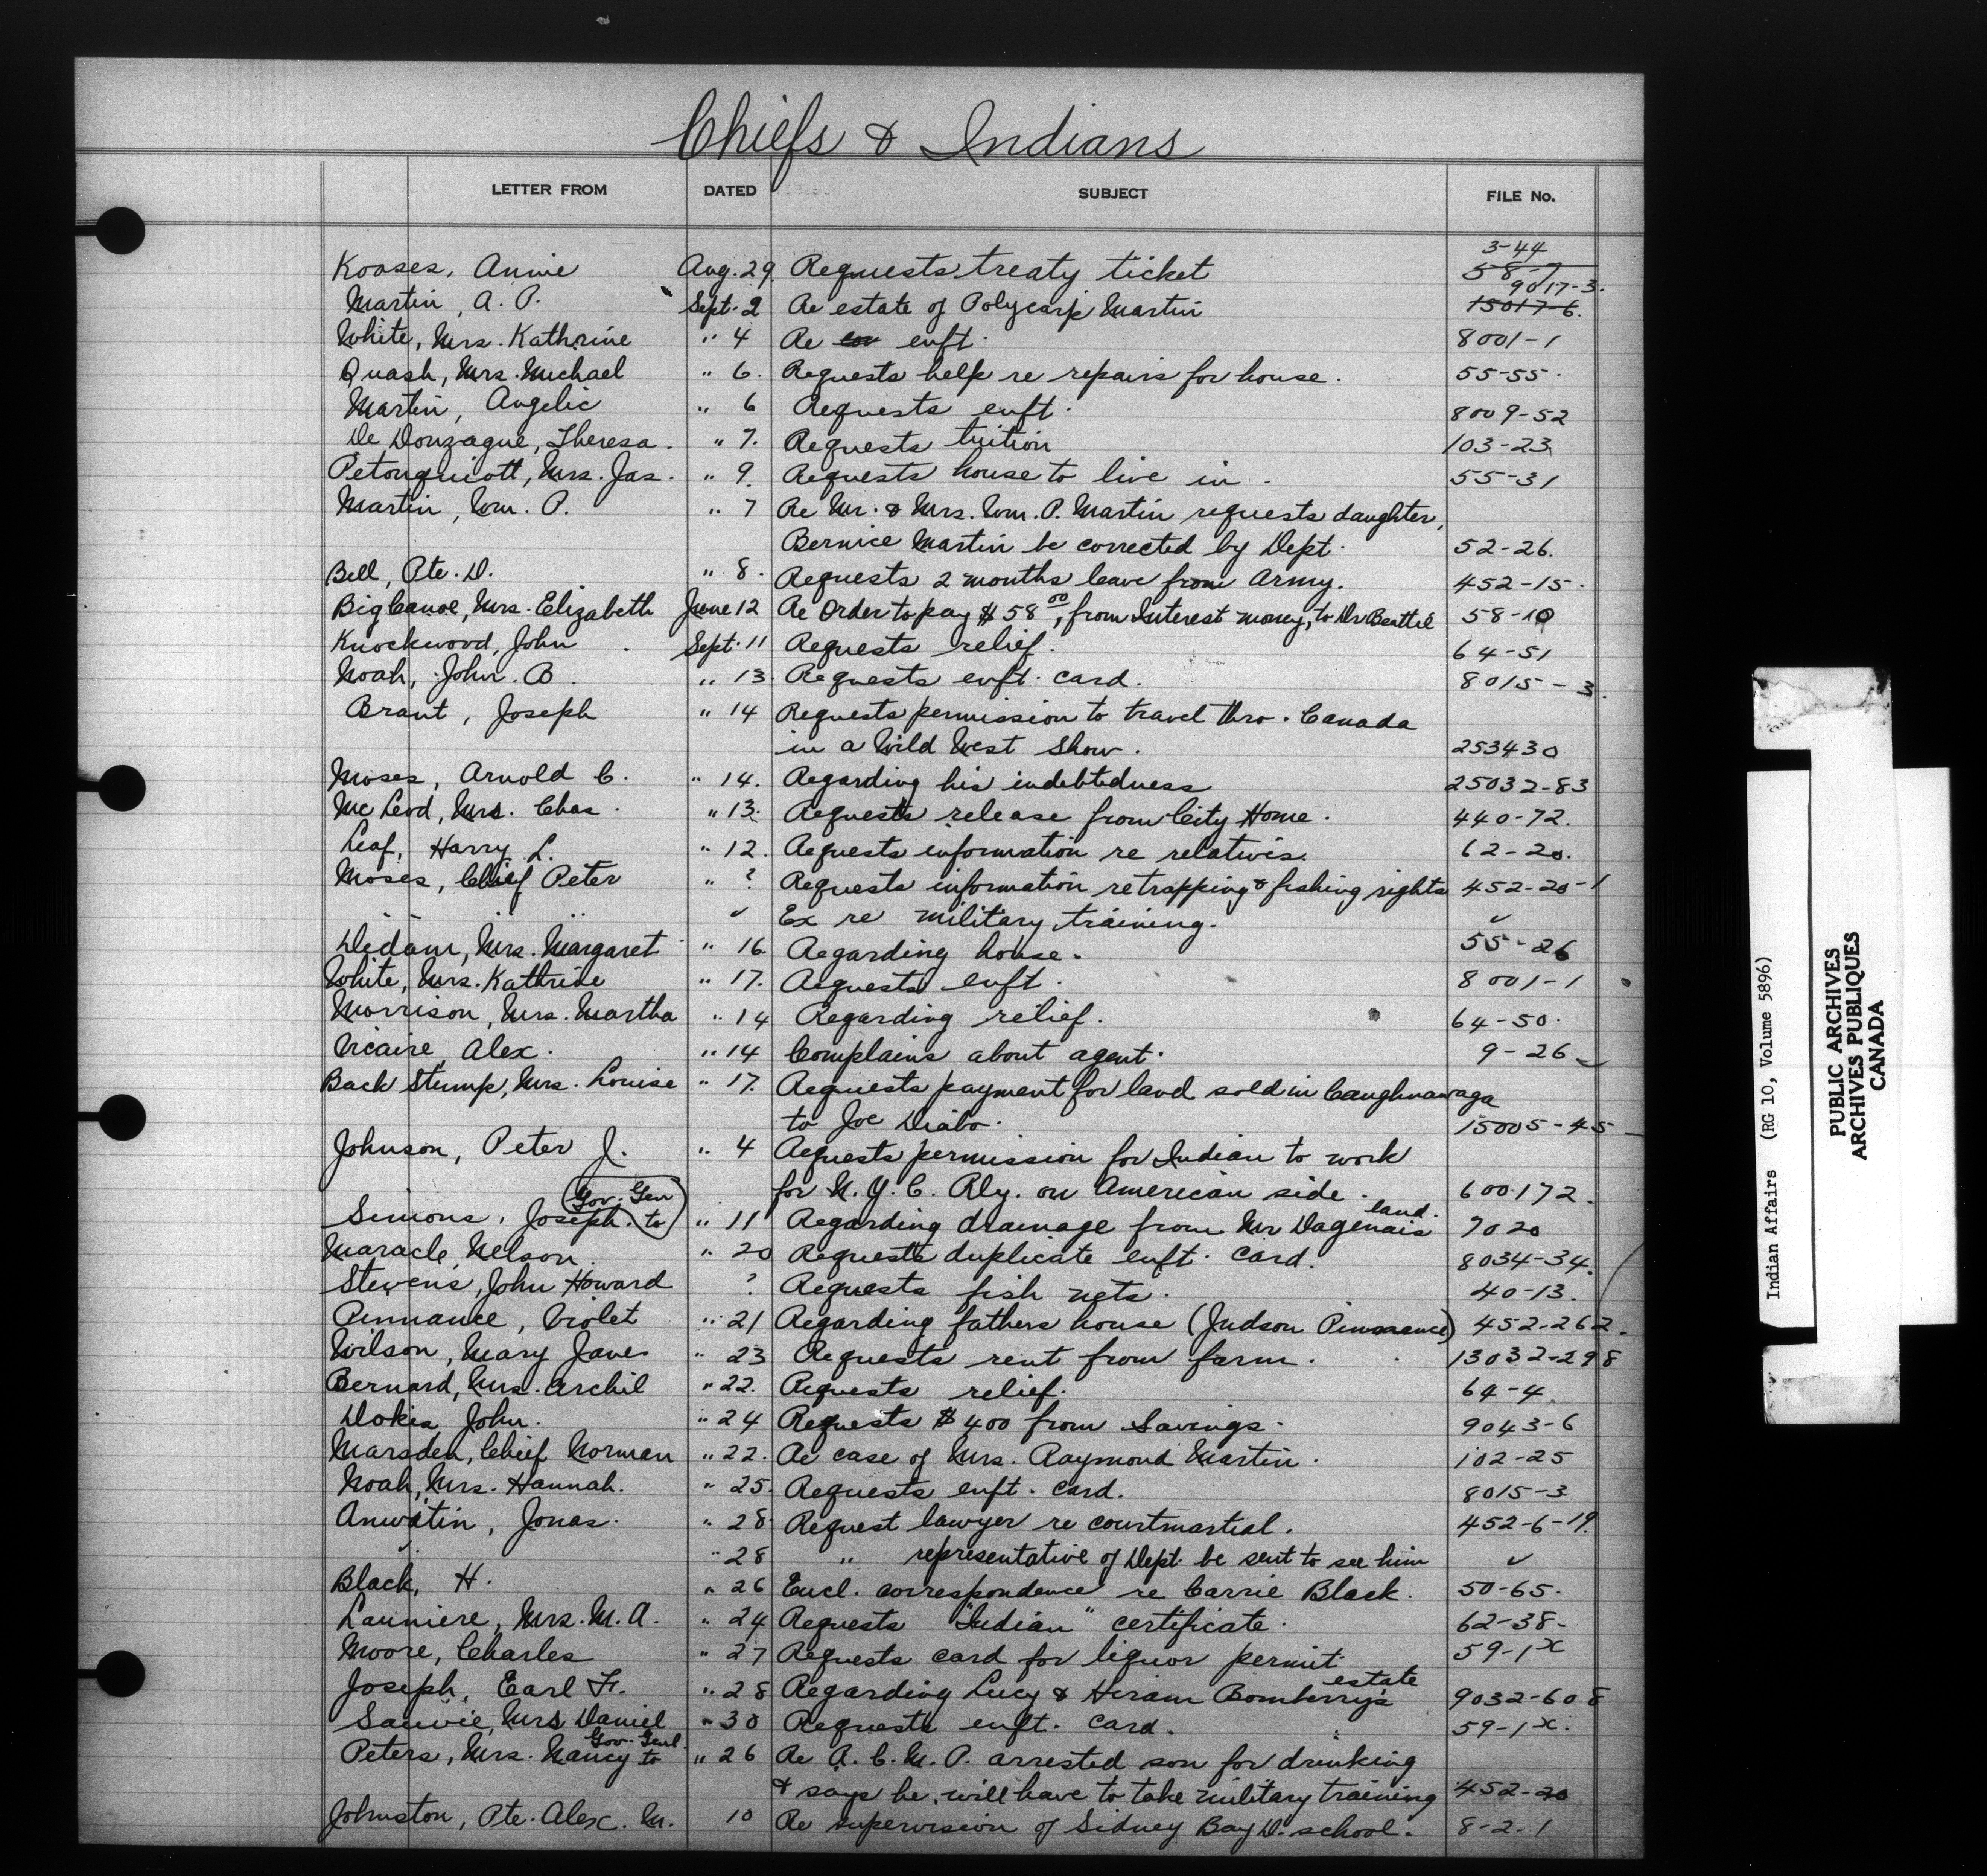 Chiefs & Indians
LETTER FROM DATED SUBJECT FILE No.
3-44
Kooses, Annie Aug. 29. Requests treaty ticket 58-7
9017-3.
Martin, A. P. Sept. 2 Re estate of Polycarp Martin 15017-6.
White, Mrs. Kathrine " 4 Re enft. 8001-1
Quash, Mrs. Michael " 6. Requests help re repairs for house. 55-55.
Martin, Angelic " 6 Requests enft. 8009-52
De Donzague, Theresa. " 7. Requests tuition 103-23
Petonquiott, Mrs. Jas. " 9. Requests house to live in. 55-31
Martin, Wm. P. " 7 Re Mr. & Mrs. Wm. P. Martin requests daughter,
Bernice Martin be corrected by Dept. 52-26.
Bell, Pte. D. " 8. Requests 2 months leave from Army. 452-15.
Big Canoe, Mrs. Elizabeth June 12 Re Order to pay $58 00, from Interest money, to Dr Beattie 58-10
Knockwood, John Sept. 11 Requests relief. 64-51
Noah, John. B. " 13. Requests enft. card. 8015-3.
Brant, Joseph " 14 Requests permission to travel thro. Canada
in a Wild West Show. 253430
Moses, Arnold C. " 14. Regarding his indebtedness 25032-83
Mc Leod, Mrs. Chas. " 13. Requests release from City Home. 440-72.
Leaf, Harry L. " 12. Requests information re relatives. 62-20.
Moses, Chief Peter " ? Requests information re trapping & fishing rights 452-20-1
" " " ✓ Ex re military training. ✓
Dedam, Mrs. Margaret " 16. Regarding house. 55-26
White, Mrs. Kathrine " 17. Requests enft. 8001-1
Morrison, Mrs. Martha " 14 Regarding relief. 64-50.
Vicaire, Alex. " 14 Complains about agent. 9-26
Back Stump, Mrs. Louise " 17. Requests payment for land sold in Caughnawaga
to Joe Diabo. 15005-45
Johnson, Peter J. " 4 Requests permission for Indian to work
for N. Y. C. Rly. on American side. 600-172.
Gov. Gen land.
Simons, Joseph. to " 11 Regarding drainage from Mr Dagenais 7020
Maracle, Nelson " 20 Requests duplicate enft. card. 8034-34.
Stevens, John Howard ? Requests fish nets. 40-13.
Pinnance, Violet " 21 Regarding fathers house (Judson Pinnance) 452-262.
Wilson, Mary Jane " 23 Requests rent from farm. 13032-298
Bernard, Mrs. Archil " 22. Requests relief. 64-4
Dokis John. " 24 Requests $400 from Savings. 9043-6
Marsden, Chief Norman " 22. Re case of Mrs. Raymond Martin. 102-25
Noah, Mrs. Hannah. " 25. Requests enft. card. 8015-3
Anwatin, Jonas. " 28. Request lawyer re courtmartial. 452-6-19.
✓ " 28 " representative of Dept. be sent to see him ✓
Black, H. " 26 Encl. correspondence re Carrie Black. 50-65.
Launiere, Mrs. M. A. " 24 Requests "Indian" certificate. 62-38-
Moore, Charles " 27 Requests card for liquor permit 59-1x
estate
Joseph, Earl F. " 28 Regarding Lucy & Hiram Bomberry's 9032-608
Sauvie, Mrs Daniel " 30 Requests enft. card. 59-1x.
Gov. Genl.
Peters, Mrs. Nancy to " 26 Re R. C. M. P. arrested son for drinking
& says he will have to take military training 452-20
Johnston, Pte. Alex. M. 10 Re supervision of Sidney Bay D. school. 8-2-1
Indian Affairs (RG 10, Volume 5896)
PUBLIC ARCHIVES
ARCHIVES PUBLIQUES
CANADA